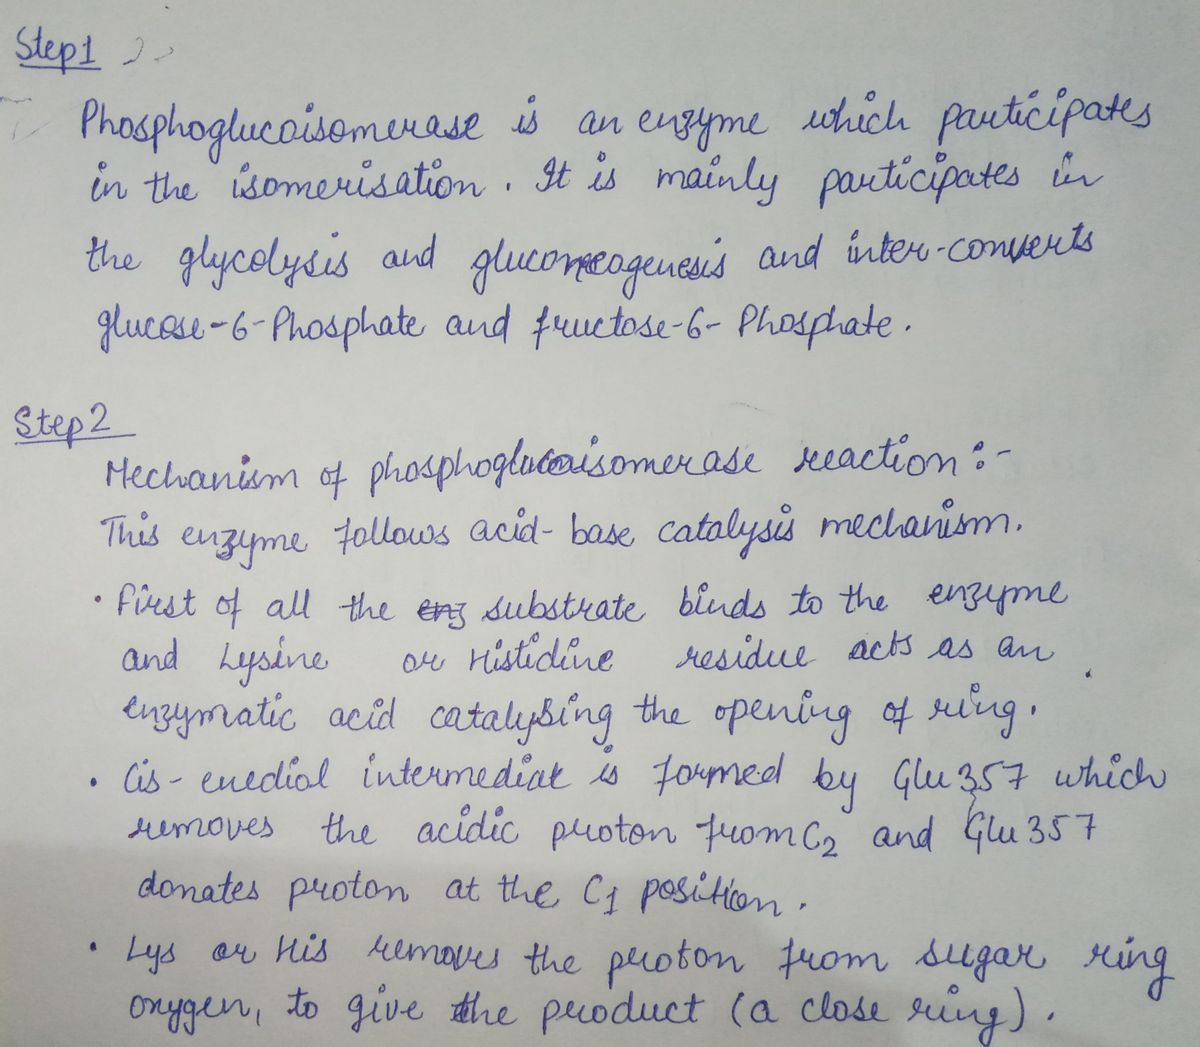 Step1
Phosphoglucoisomerase is an enzyme which participates
in the isomerisation. It is mainly participates in
the glycolysis and gluconeogenesis and inter-converts
glucose-6-Phosphate and fructose-6-Phosphate.
Step2
Mechanism of phosphoglucoisomerase reaction :-
This enzyme follows acid-base catalysis mechanism.
• First of all the enz substrate binds to the enzyme
and Lysine or Histidine residue acts as an
enzymatic acid catalysing the opening of ring.
• Cis-enediol intermediate is formed by Glu 357 which
removes the acidic proton from C2 and Glu 357
donates proton at the C1 position.
• Lys or His removes the proton from sugar ring
oxygen, to give the product (a close ring).